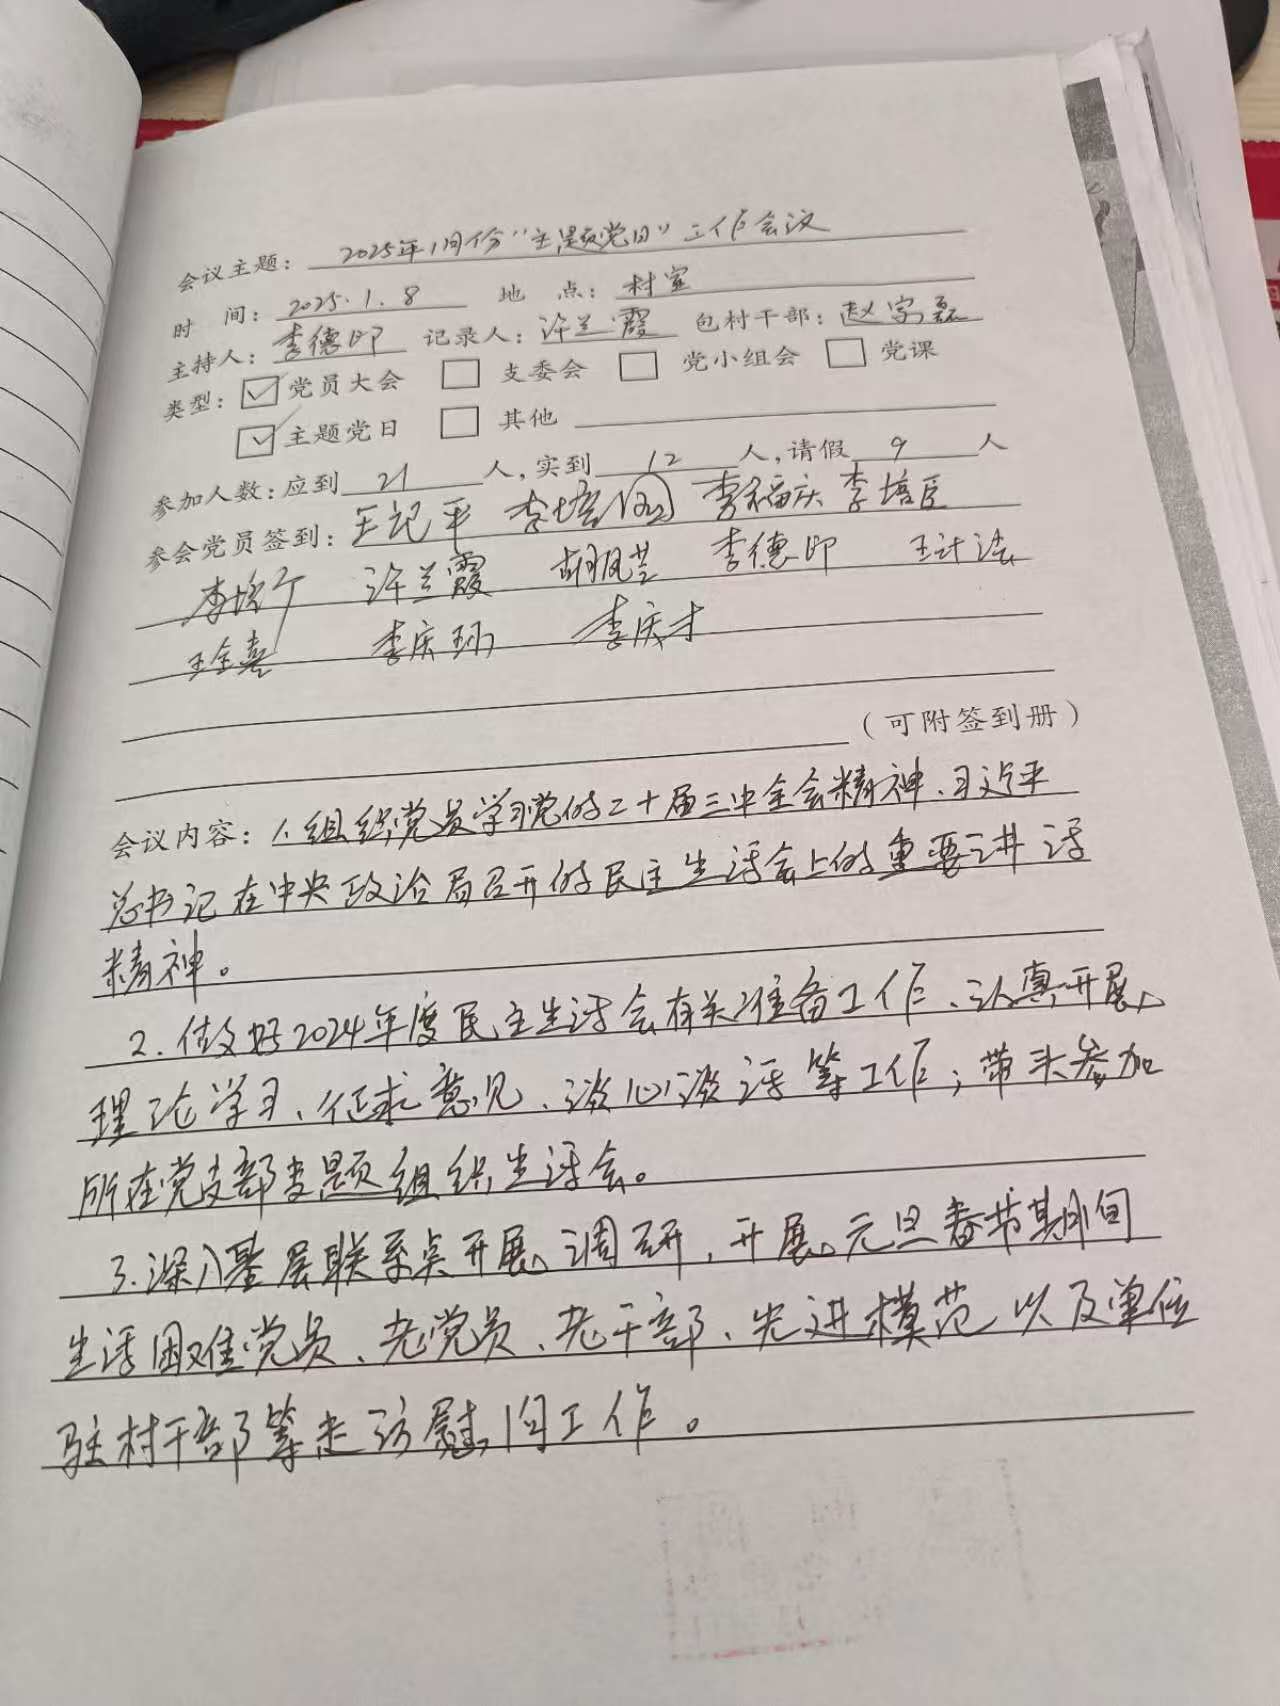 会议主题：2025年1月份“主题党日”工作会议
时 间：2025.1.8 地 点：村室
主持人：李德印 记录人：许兰霞 包村干部：赵家磊
类型：☑党员大会 □支委会 □党小组会 □党课
☑主题党日 □其他
参加人数：应到21人，实到12人，请假9人
参会党员签到：王记平 李培 李福庆 李培臣
李培 许兰霞 胡凤芝 李德印 王计法
王全喜 李庆珍 李庆才
（可附签到册）
会议内容：1.组织党员学习党的二十届三中全会精神、习近平
总书记在中央政治局召开的民主生活会上的重要讲话
精神。
2.做好2024年度民主生活会有关准备工作、认真开展
理论学习、征求意见、谈心谈话等工作；带头参加
所在党支部专题组织生活会。
3.深入基层联系点开展调研，开展元旦春节期间
生活困难党员、老党员、老干部、先进模范以及单位
驻村干部等走访慰问工作。